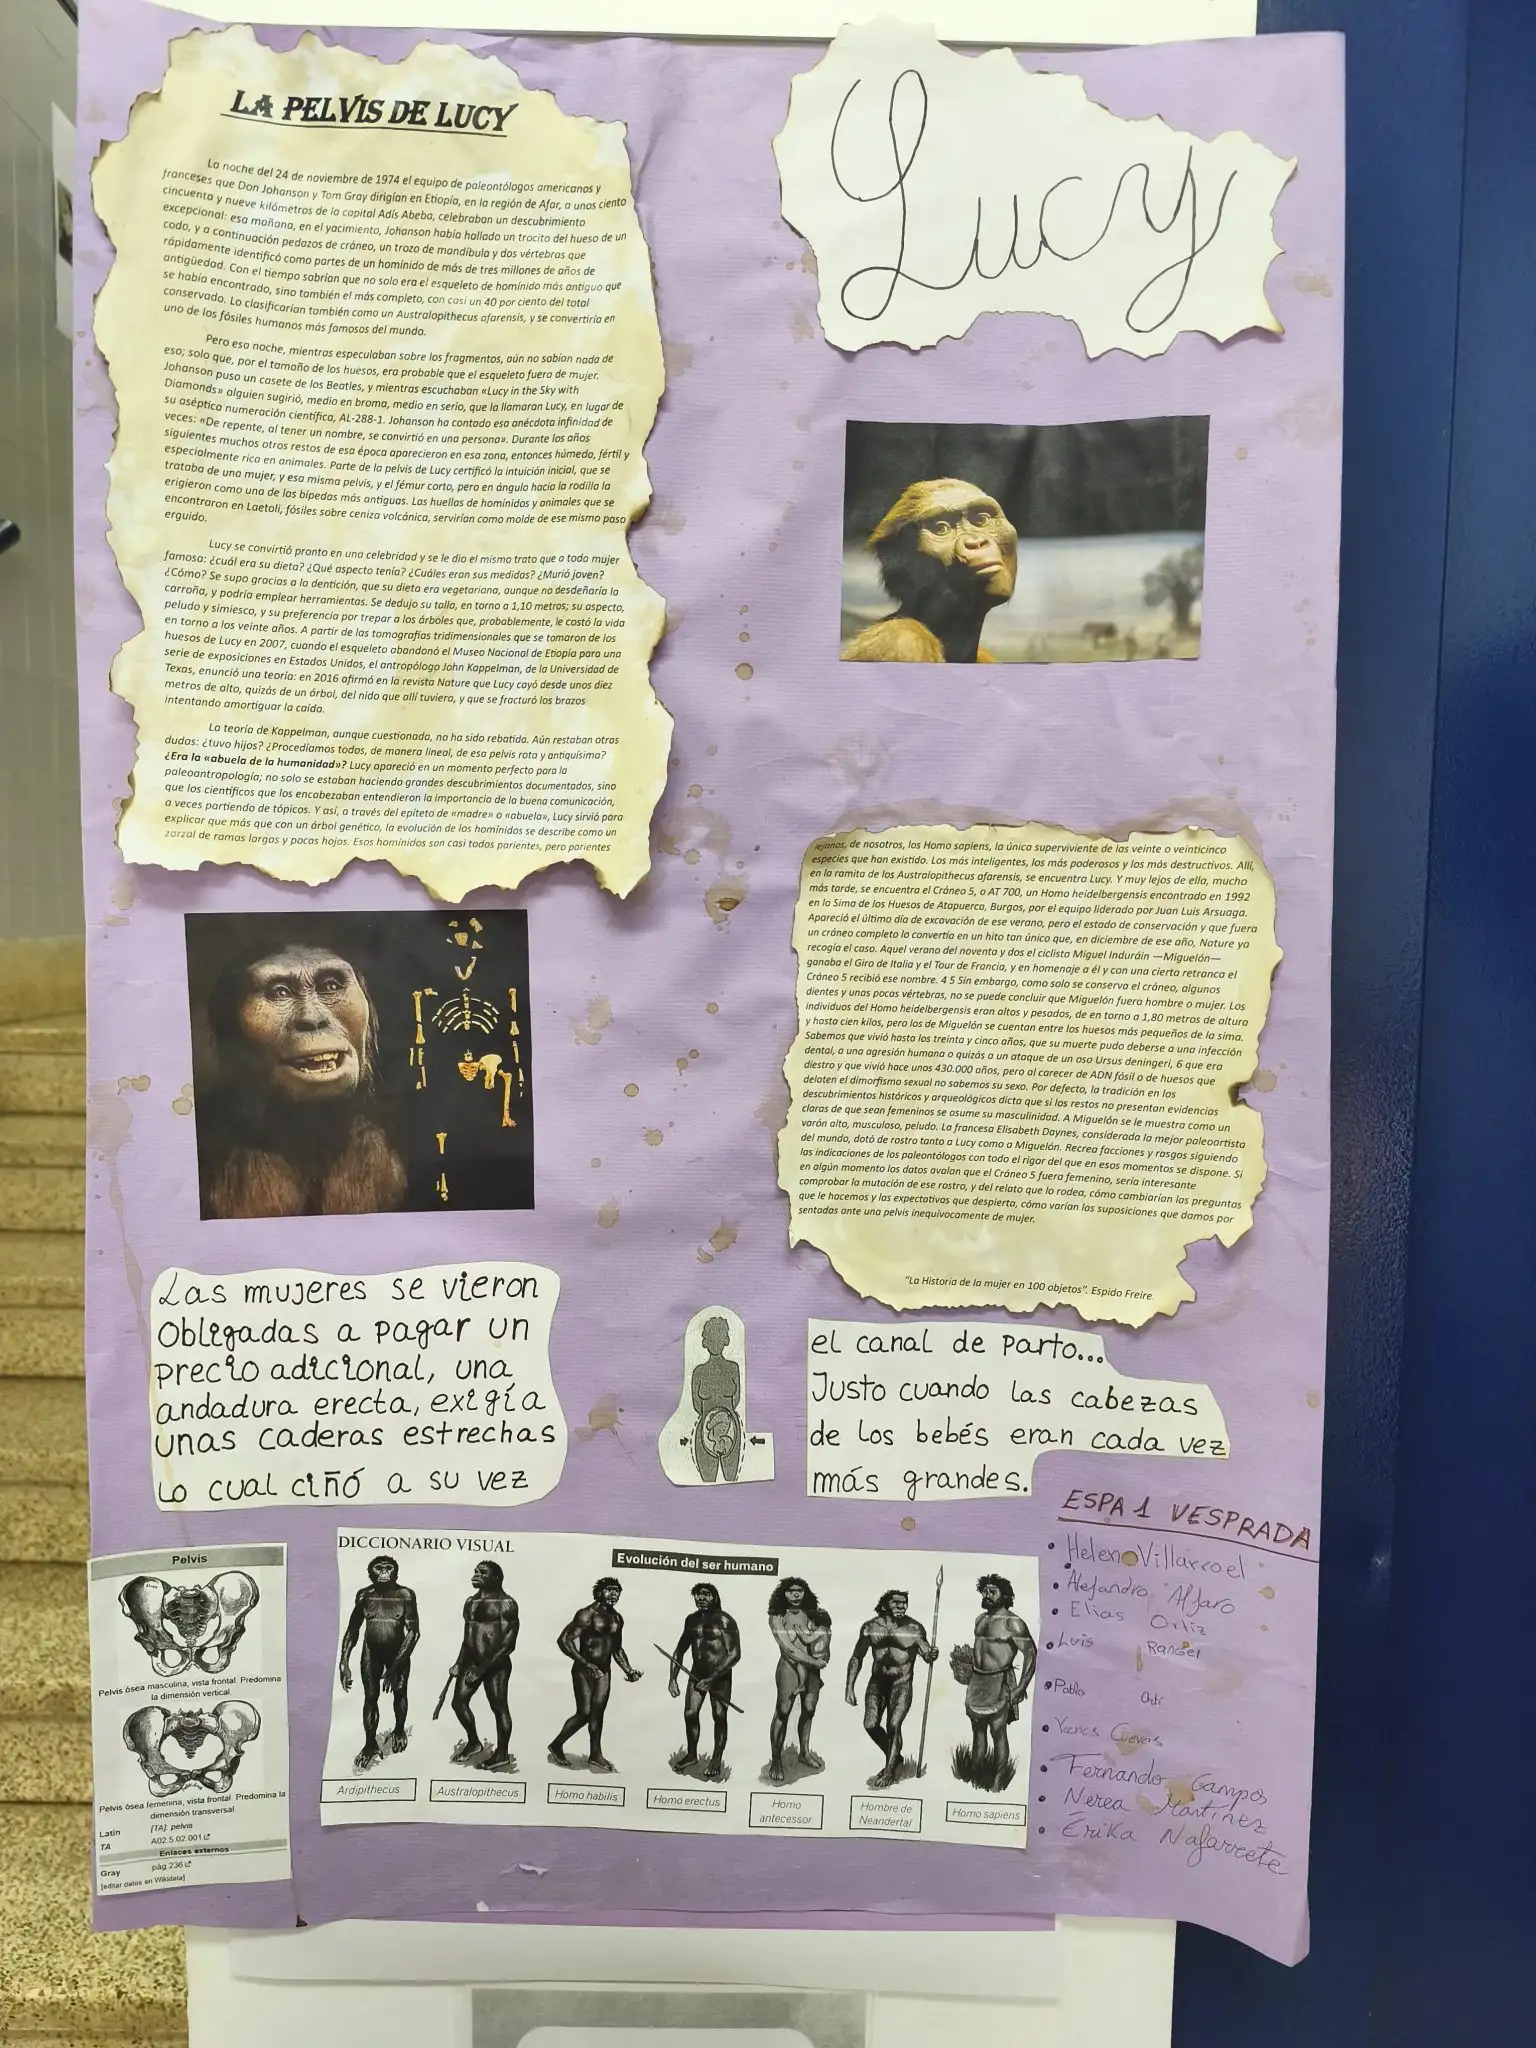 LA PELVIS DE LUCY
La noche del 24 de noviembre de 1974 el equipo de paleontólogos americanos y
franceses que Don Johanson y Tom Gray dirigían en Etiopía, en la región de Afar, a unos ciento
cincuenta y nueve kilómetros de la capital Adís Abeba, celebraban un descubrimiento
excepcional: esa mañana, en el yacimiento, Johanson había hallado un trocito del hueso de un
codo, y a continuación pedazos de cráneo, un trozo de mandíbula y dos vértebras que
rápidamente identificó como partes de un homínido de más de tres millones de años de
antigüedad. Con el tiempo sabrían que no solo era el esqueleto de homínido más antiguo que
se había encontrado, sino también el más completo, con casi un 40 por ciento del total
conservado. Lo clasificarían también como un Australopithecus afarensis, y se convertiría en
uno de los fósiles humanos más famosos del mundo.
Pero esa noche, mientras especulaban sobre los fragmentos, aún no sabían nada de
eso; solo que, por el tamaño de los huesos, era probable que el esqueleto fuera de mujer.
Johanson puso un casete de los Beatles, y mientras escuchaban «Lucy in the Sky with
Diamonds» alguien sugirió, medio en broma, medio en serio, que la llamaran Lucy, en lugar de
su aséptica numeración científica, AL-288-1. Johanson ha contado esa anécdota infinidad de
veces: «De repente, al tener un nombre, se convirtió en una persona». Durante los años
siguientes muchos otros restos de esa época aparecieron en esa zona, entonces húmeda, fértil y
especialmente rica en animales. Parte de la pelvis de Lucy certificó la intuición inicial, que se
trataba de una mujer, y esa misma pelvis, y el fémur corto, pero en ángulo hacia la rodilla la
erigieron como una de las bípedas más antiguas. Las huellas de homínidos y animales que se
encontraron en Laetoli, fósiles sobre ceniza volcánica, servirían como molde de ese mismo paso
erguido.
Lucy se convirtió pronto en una celebridad y se le dio el mismo trato que a toda mujer
famosa: ¿cuál era su dieta? ¿Qué aspecto tenía? ¿Cuáles eran sus medidas? ¿Murió joven?
¿Cómo? Se supo gracias a la dentición, que su dieta era vegetariana, aunque no desdeñaría la
carroña, y podría emplear herramientas. Se dedujo su talla, en torno a 1,10 metros; su aspecto,
peludo y simiesco, y su preferencia por trepar a los árboles que, probablemente, le costó la vida
en torno a los veinte años. A partir de las tomografías tridimensionales que se tomaron de los
huesos de Lucy en 2007, cuando el esqueleto abandonó el Museo Nacional de Etiopía para una
serie de exposiciones en Estados Unidos, el antropólogo John Kappelman, de la Universidad de
Texas, enunció una teoría: en 2016 afirmó en la revista Nature que Lucy cayó desde unos diez
metros de alto, quizás de un árbol, del nido que allí tuviera, y que se fracturó los brazos
intentando amortiguar la caída.
La teoría de Kappelman, aunque cuestionada, no ha sido rebatida. Aún restaban otras
dudas: ¿tuvo hijos? ¿Procedíamos todos, de manera lineal, de esa pelvis rota y antiquísima?
¿Era la «abuela de la humanidad»? Lucy apareció en un momento perfecto para la
paleoantropología; no solo se estaban haciendo grandes descubrimientos documentados, sino
que los científicos que los encabezaban entendieron la importancia de la buena comunicación,
a veces partiendo de tópicos. Y así, a través del epíteto de «madre» o «abuela», Lucy sirvió para
explicar que más que con un árbol genético, la evolución de los homínidos se describe como un
zarzal de ramas largas y pocas hojas. Esos homínidos son casi todos parientes, pero parientes
Lucy
lejanos, de nosotros, los Homo sapiens, la única superviviente de las veinte o veinticinco
especies que han existido. Los más inteligentes, los más poderosos y los más destructivos. Allí,
en la ramita de los Australopithecus afarensis, se encuentra Lucy. Y muy lejos de ella, mucho
más tarde, se encuentra el Cráneo 5, o AT 700, un Homo heidelbergensis encontrado en 1992
en la Sima de los Huesos de Atapuerca, Burgos, por el equipo liderado por Juan Luis Arsuaga.
Apareció el último día de excavación de ese verano, pero el estado de conservación y que fuera
un cráneo completo la convertía en un hito tan único que, en diciembre de ese año, Nature ya
recogía el caso. Aquel verano del noventa y dos el ciclista Miguel Induráin —Miguelón—
ganaba el Giro de Italia y el Tour de Francia, y en homenaje a él y con una cierta retranca el
Cráneo 5 recibió ese nombre. 4 5 Sin embargo, como solo se conserva el cráneo, algunos
dientes y unas pocas vértebras, no se puede concluir que Miguelón fuera hombre o mujer. Los
individuos del Homo heidelbergensis eran altos y pesados, de en torno a 1,80 metros de altura
y hasta cien kilos, pero los de Miguelón se cuentan entre los huesos más pequeños de la sima.
Sabemos que vivió hasta los treinta y cinco años, que su muerte pudo deberse a una infección
dental, a una agresión humana o quizás a un ataque de un oso Ursus deningeri, 6 que era
diestro y que vivió hace unos 430.000 años, pero al carecer de ADN fósil o de huesos que
delaten el dimorfismo sexual no sabemos su sexo. Por defecto, la tradición en los
descubrimientos históricos y arqueológicos dicta que si los restos no presentan evidencias
claras de que sean femeninos se asume su masculinidad. A Miguelón se le muestra como un
varón alto, musculoso, peludo. La francesa Elisabeth Daynes, considerada la mejor paleoartista
del mundo, dotó de rostro tanto a Lucy como a Miguelón. Recrea facciones y rasgos siguiendo
las indicaciones de los paleontólogos con todo el rigor del que en esos momentos se dispone. Si
en algún momento los datos avalan que el Cráneo 5 fuera femenino, sería interesante
comprobar la mutación de ese rostro, y del relato que lo rodea, cómo cambiarían las preguntas
que le hacemos y las expectativas que despierta, cómo varían las suposiciones que damos por
sentadas ante una pelvis inequívocamente de mujer.
"La Historia de la mujer en 100 objetos". Espido Freire.
Las mujeres se vieron
Obligadas a pagar un
precio adicional, una
andadura erecta, exigía
unas caderas estrechas
lo cual ciñó a su vez
el canal de parto...
Justo cuando las cabezas
de los bebés eran cada vez
más grandes.
ESPA 1 VESPRADA
• Helen Villarroel
• Alejandro Alfaro
• Elias Ortiz
• Luis Rangel
• Pablo
• Fernando Campos
• Nerea Martínez
• Érika Nafarrete
Pelvis
Pelvis ósea masculina, vista frontal. Predomina
la dimensión vertical.
Pelvis ósea femenina, vista frontal. Predomina la
dimensión transversal.
Latin [TA]: pelvis
TA A02.5.02.001
Enlaces externos
Gray pág.236
[editar datos en Wikidata]
DICCIONARIO VISUAL
Evolución del ser humano
Ardipithecus
Australopithecus
Homo habilis
Homo erectus
Homo
antecessor
Hombre de
Neandertal
Homo sapiens